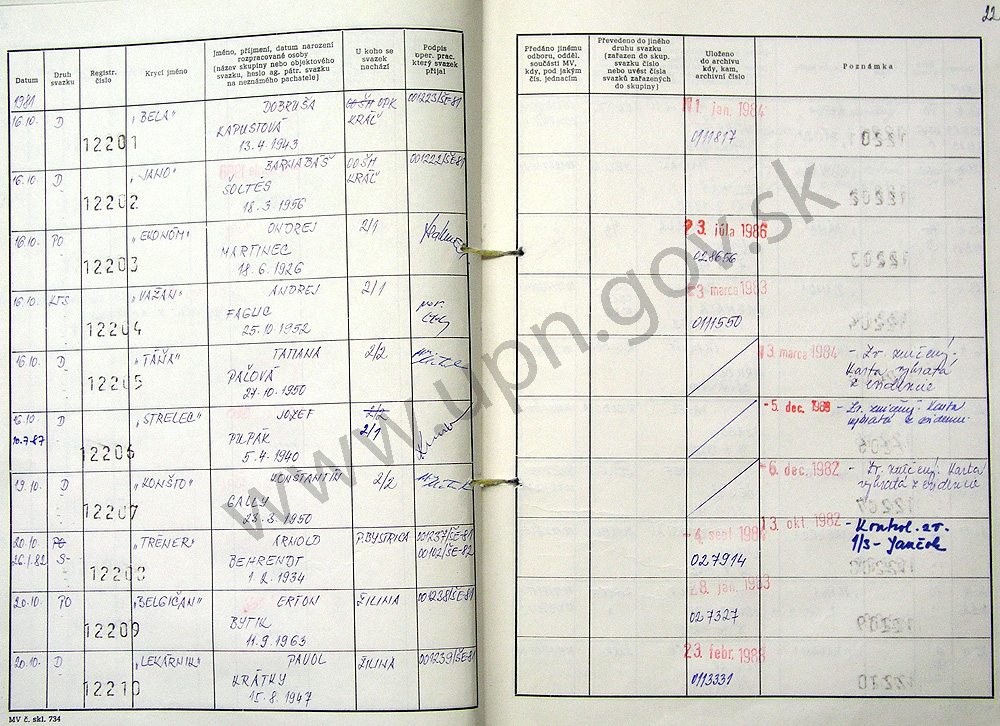 22
Datum
Druh svazku
Registr. číslo
Krycí jméno
Jméno, příjmení, datum narození rozpracované osoby (název skupiny nebo objektového svazku, heslo ag. pátr. svazku na neznámého pachatele)
U koho se svazek nachází
Podpis oper. prac. který svazek přijal
Předáno jinému odboru, odděl. součásti MV, kdy, pod jakým čís. jednacím
Převedeno do jiného druhu svazku (zařazen do skup. svazku číslo nebo uvést čísla svazků zařazených do skupiny)
Uloženo do archivu kdy, kam, archivní číslo
Poznámka
1981
16.10. D 12201 „BELA" DOBRUŠA OOŠH OPK 001223/ŠE-81 11. jan. 1984
KAPUSTOVÁ KRÁĽ 0111817
13.4.1943
16.10. D 12202 „JANO" BARNABÁŠ OOŠH 001222/ŠE-81
ŠOLTÉS KRÁĽ
18.3.1956
16.10. PO 12203 „EKONÓM" ONDREJ 2/1 23. júla 1986
MARTINEC 028656
18.6.1926
16.10. KTS 12204 „VAŽAN" ANDREJ 2/1 23 marca 1983
FAGUĽ 0111550
25.10.1952
16.10. D 12205 „TÁŇA" TATIANA 2/2 13 marca 1984 - Zv. zničený.
PAĽOVÁ Karta vybratá
27.10.1950 z evidencie
16.10. D 12206 „STRELEC" JOZEF 2/2 -5. dec. 1989 - Zv. zničený. Karta
10.7.87 PUPÁK 2/1 vybratá z evidencie
5.4.1940
19.10. D 12207 „KONŠTO" KONŠTANTÍN 2/2 -6. dec. 1982 - Zv. zničený. Karta
GALLY vybratá z evidencie
23.3.1950
20.10. PO 12208 „TRÉNER" ARNOLD P.BYSTRICA 001237/ŠE-81 -4. sept. 1984 13. okt. 1982 - Kontrol. zv.
26.1.82 S- BEHRENDT 00102/ŠE-82 027914 1/S - Jančok
1.2.1934
20.10. PO 12209 „BELGIČAN" ERTON ŽILINA 001238/ŠE-81 28. jan. 1983
BYTIK 027327
11.9.1963
20.10. D 12210 „LEKÁRNIK" PAVOL ŽILINA 001239/ŠE-81 23 febr. 1988
KRÁTKY 0113331
15.8.1947
MV č. skl. 734
www.upn.gov.sk